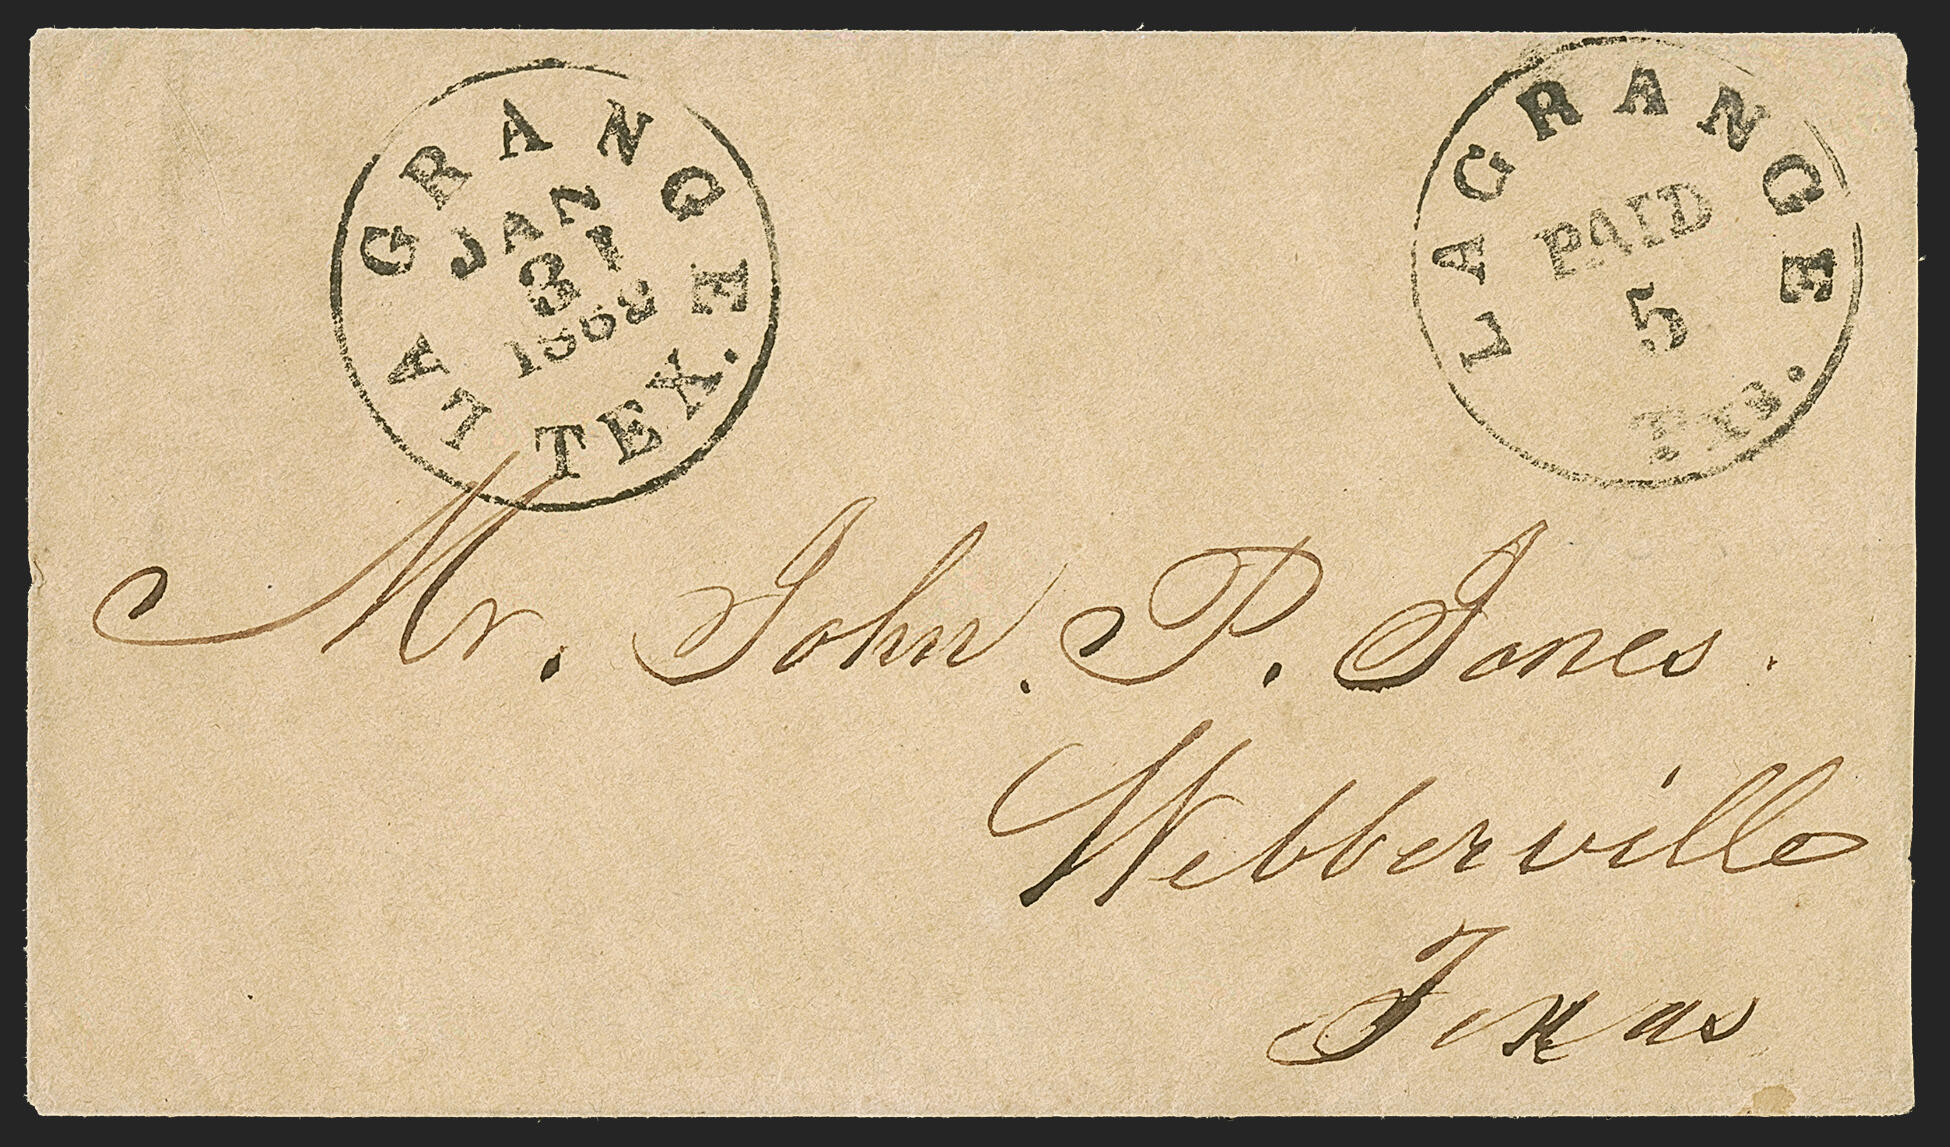 LA GRANGE
JAN
31
1862
TEX.
LAGRANGE
PAID
5
Tex.
Mr. John. P. Jones.
Webberville
Texas